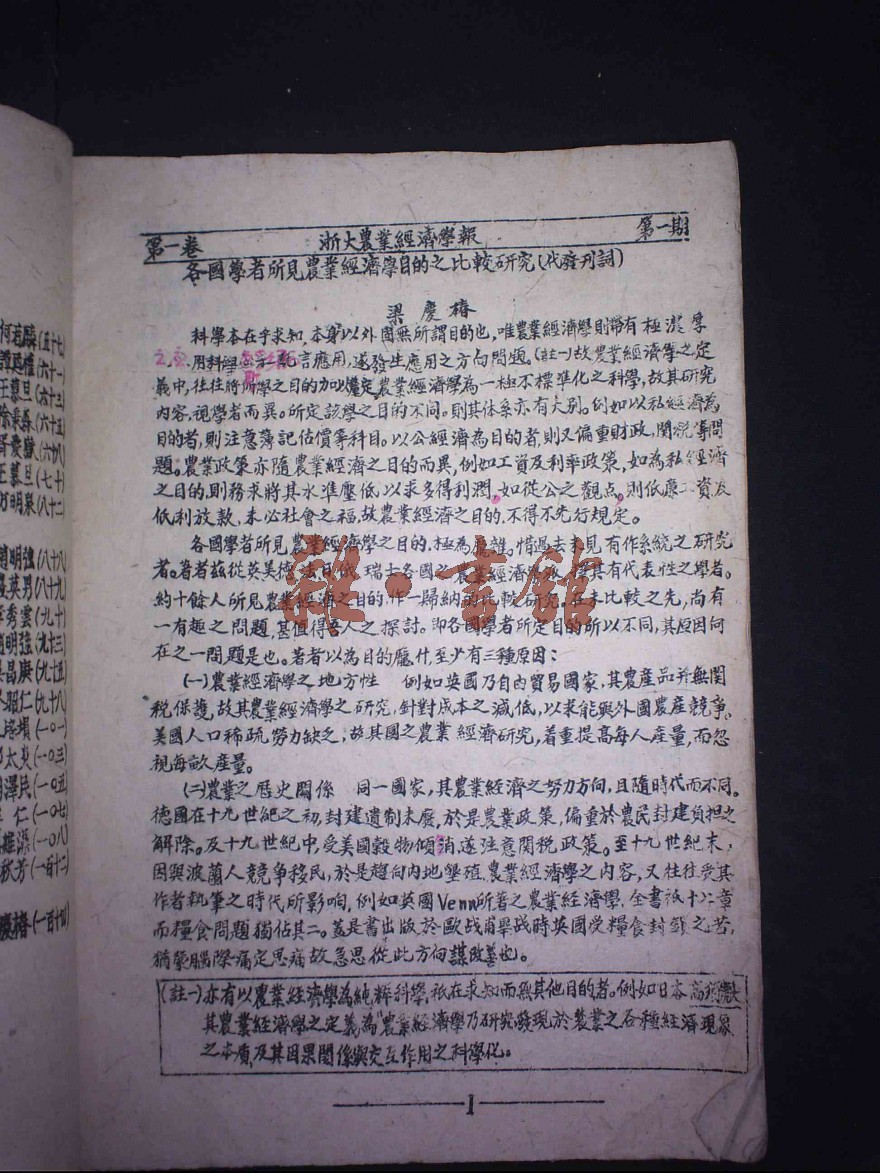 第一卷 浙大農業經濟學報 第一期
各國學者所見農業經濟學目的之比較研究(代發刊詞)
梁慶椿
科學本在乎求知,本身以外固無所謂目的也,唯農業經濟學則帶有極濃厚
之 用科學 言應用,遂發生應用之方向問題。(註一)故農業經濟學之定
義中,往往將所學之目的加以鑑定。農業經濟學為一極不標準化之科學,故其研究
內容,視學者而異。所定該學之目的不同。則其体系亦有大別。例如以私經濟為
目的者,則注意簿記估價等科目。以公經濟為目的者,則又偏重財政,關稅等問
題。農業政策亦隨農業經濟之目的而異,例如工資及利率政策,如為私經濟
之目的,則務求將其水準壓低,以求多得利潤,如從公之觀点。則低廉工資及
低利放款,未必社會之福,故農業經濟之目的,不得不先行規定。
各國學者所見農業經濟學之目的,極為龐雜。惜過去未見有作系統之研究
者。著者茲從英美德法日俄瑞士各國之農業經濟學 擇其有代表性之學者。
約十餘人所見農業經濟之目的,作一歸納的比較研究。在未比較之先,尚有
一有趣之問題,甚值得吾人之探討。即各國學者所定目的所以不同,其原因何
在之一問題是也。著者以為目的龐什,至少有三種原因:
(一)農業經濟學之地方性 例如英國乃自由貿易國家,其農產品并無關
稅保護,故其農業經濟學之研究,針對成本之減低,以求能與外國農產競爭。
美國人口稀疏,勞力缺乏,故其國之農業經濟研究,着重提高每人產量,而忽
視每畝產量。
(二)農業之歷史關係 同一國家,其農業經濟之努力方向,且隨時代而不同。
德國在十九世紀之初,封建遺制未廢,於是農業政策,偏重於農民封建負担之
解除。及十九世紀中,受美國穀物傾銷遂注意關稅政策。至十九世紀末,
因與波蘭人競爭移民,於是趨向內地墾殖。農業經濟學之內容,又往往受其
作者執筆之時代所影响,例如英國Venn所著之農業經濟學,全書祇十六章
而糧食問題獨佔其二。蓋是書出版於歐战甫畢战時英國受糧食封鎖之苦,
猶縈腦際痛定思痛故急思從此方向謀改善也。
(註一)亦有以農業經濟學為純粹科學,祇在求知而無其他目的者。例如日本
其農業經濟學之定義為"農業經濟學乃研究發現於農業之各種經濟現象
之本質,及其因果關係與交互作用之科學也。
1
(五十七)
(六十一)
王慕旦(六十三)
(六十五)
(六十八)
王慕旦(七十)
(八十二)
趙明強(八十八)
英男(八十九)
秀雲(九十)
趙明強(九十三)
昌庚(九十五)
(九十八)
(一〇一)
太炎(一〇三)
澤民(一〇五)
仁(一〇七)
(一〇八)
秋芳(一百十二)
慶椿(一百十四)